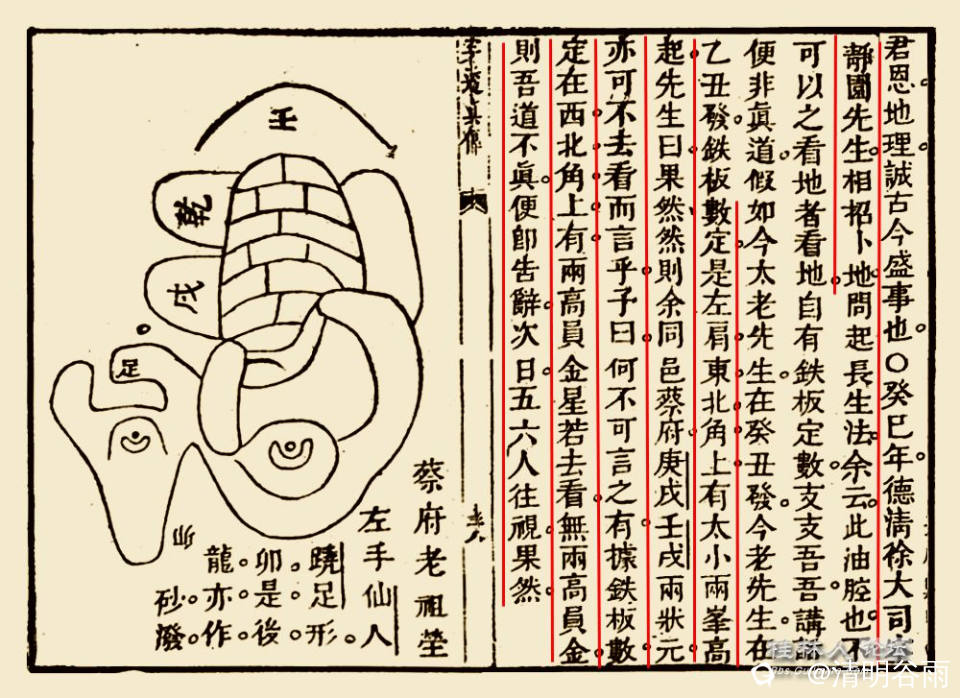 君恩地理誠古今盛事也〇癸巳年德清徐大司
靜園先生相招卜地問起長生法余云此油腔也不
可以之看地者看地自有鉄板定數支支吾吾講
便非眞道假如今太老先生在癸丑發今老先生在
乙丑發鉄板數定是左肩東北角上有太小兩峯高
起先生曰果然然則余同邑蔡府庚戌壬戌兩狀元
亦可不去看而言乎予曰何不可言之有據鉄板數
定在西北角上有兩高員金星若去看無兩高員金
則吾道不眞便卽告辭次日五六人往視果然
壬
乾
戌
足
蔡府老祖塋
左手仙人
蹺足形
卯是後
龍亦作
砂潑
桂林人论坛
@清明谷雨